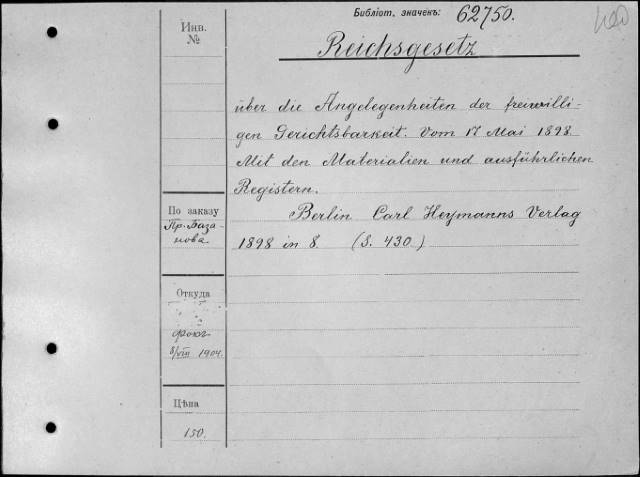 Библіот. значекъ: 62750.
Инв.
№
Reichsgesetz
über die Angelegenheiten der freiwilli-
gen Gerichtsbarkeit. Vom 17 Mai 1898
Mit den Materialien und ausführlichen
Registern.
Berlin Carl Heymanns Verlag
1898 in 8 (S. 430)
По заказу
Пр. База-
нова.
Откуда
8/VIII 1904.
Цѣна
150.